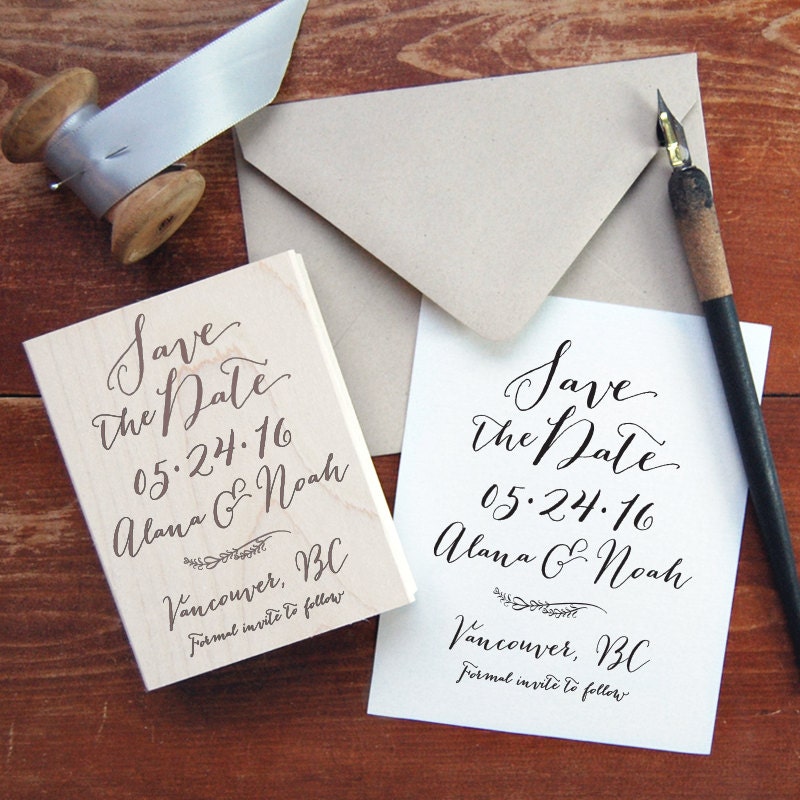 Save
the Date
05·24·16
Alana & Noah
Vancouver, BC
Formal invite to follow
Save
the Date
05·24·16
Alana & Noah
Vancouver, BC
Formal invite to follow